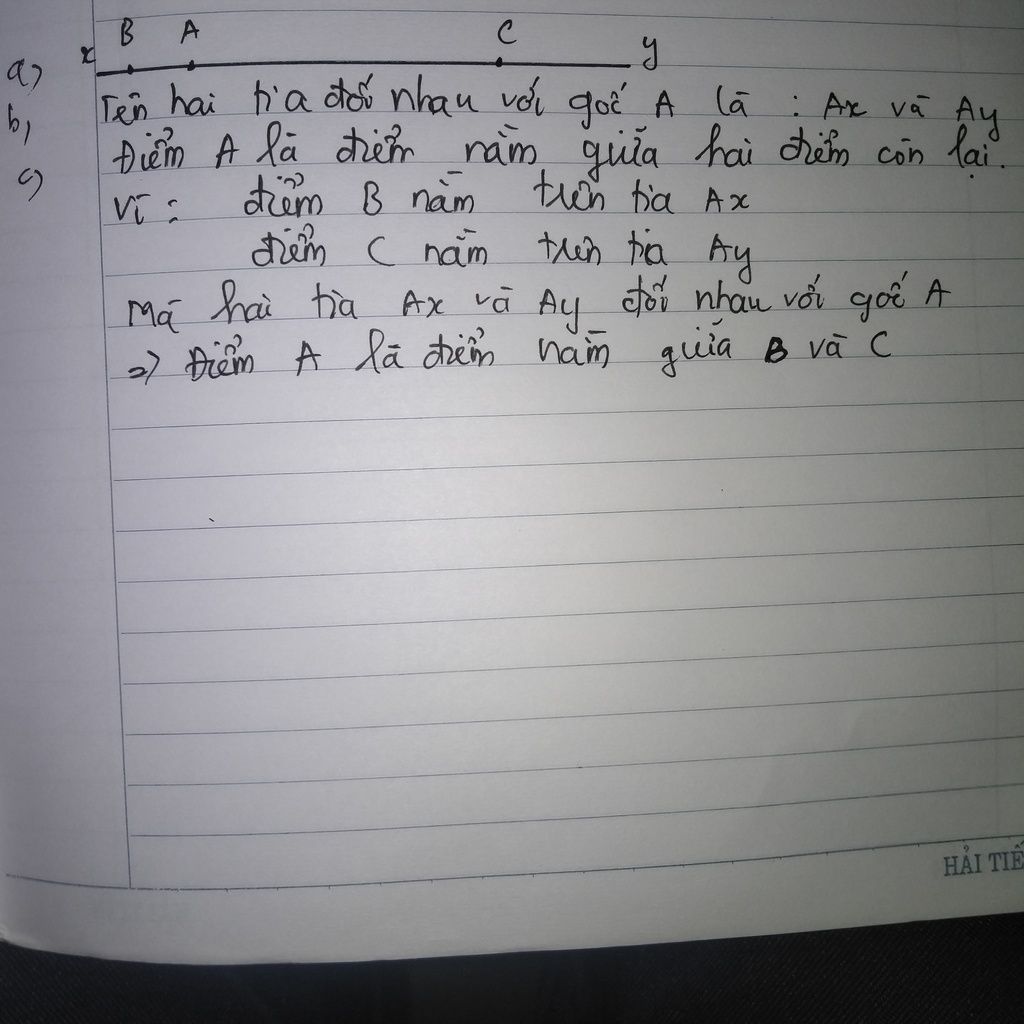 B A C
a) x y
b, Tên hai tia đối nhau với gốc A là : Ax và Ay
c) Điểm A là điểm nằm giữa hai điểm còn lại.
Vì : điểm B nằm trên tia Ax
điểm C nằm trên tia Ay
Mà hai tia Ax và Ay đối nhau với gốc A
=> Điểm A là điểm nằm giữa B và C
HẢI TIẾ